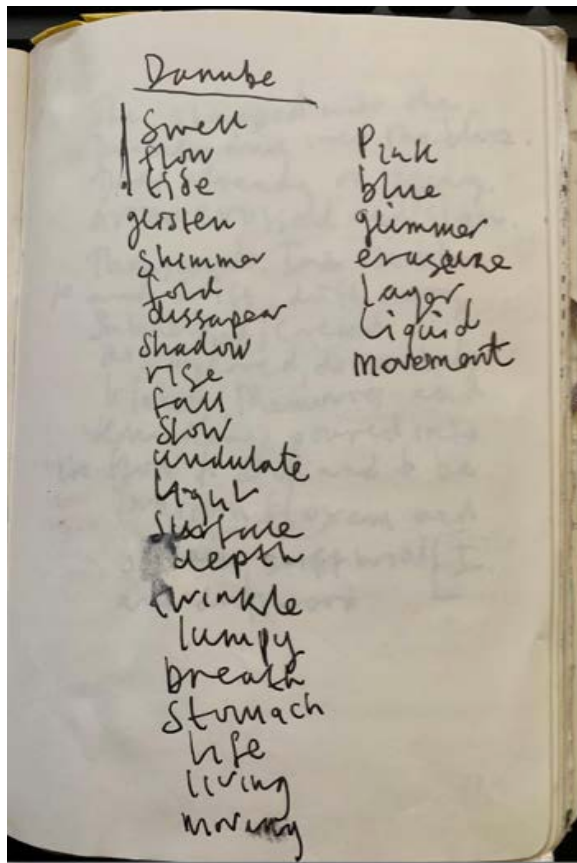 Danube
Swell
flow
tide
glisten
shimmer
fold
dissapear
shadow
rise
fall
slow
undulate
light
surface
depth
twinkle
lumpy
breath
stomach
life
living
moving
Pink
blue
glimmer
erasure
layer
liquid
movement